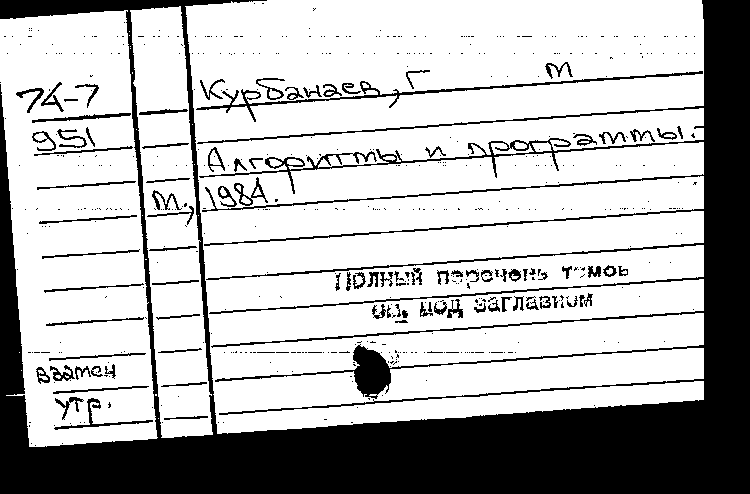 74-7 Курбанаев, Г m
951
Алгоритмы и программы.-
М., 1984.
Полный перечень томов
см. под заглавием
взамен
утр.